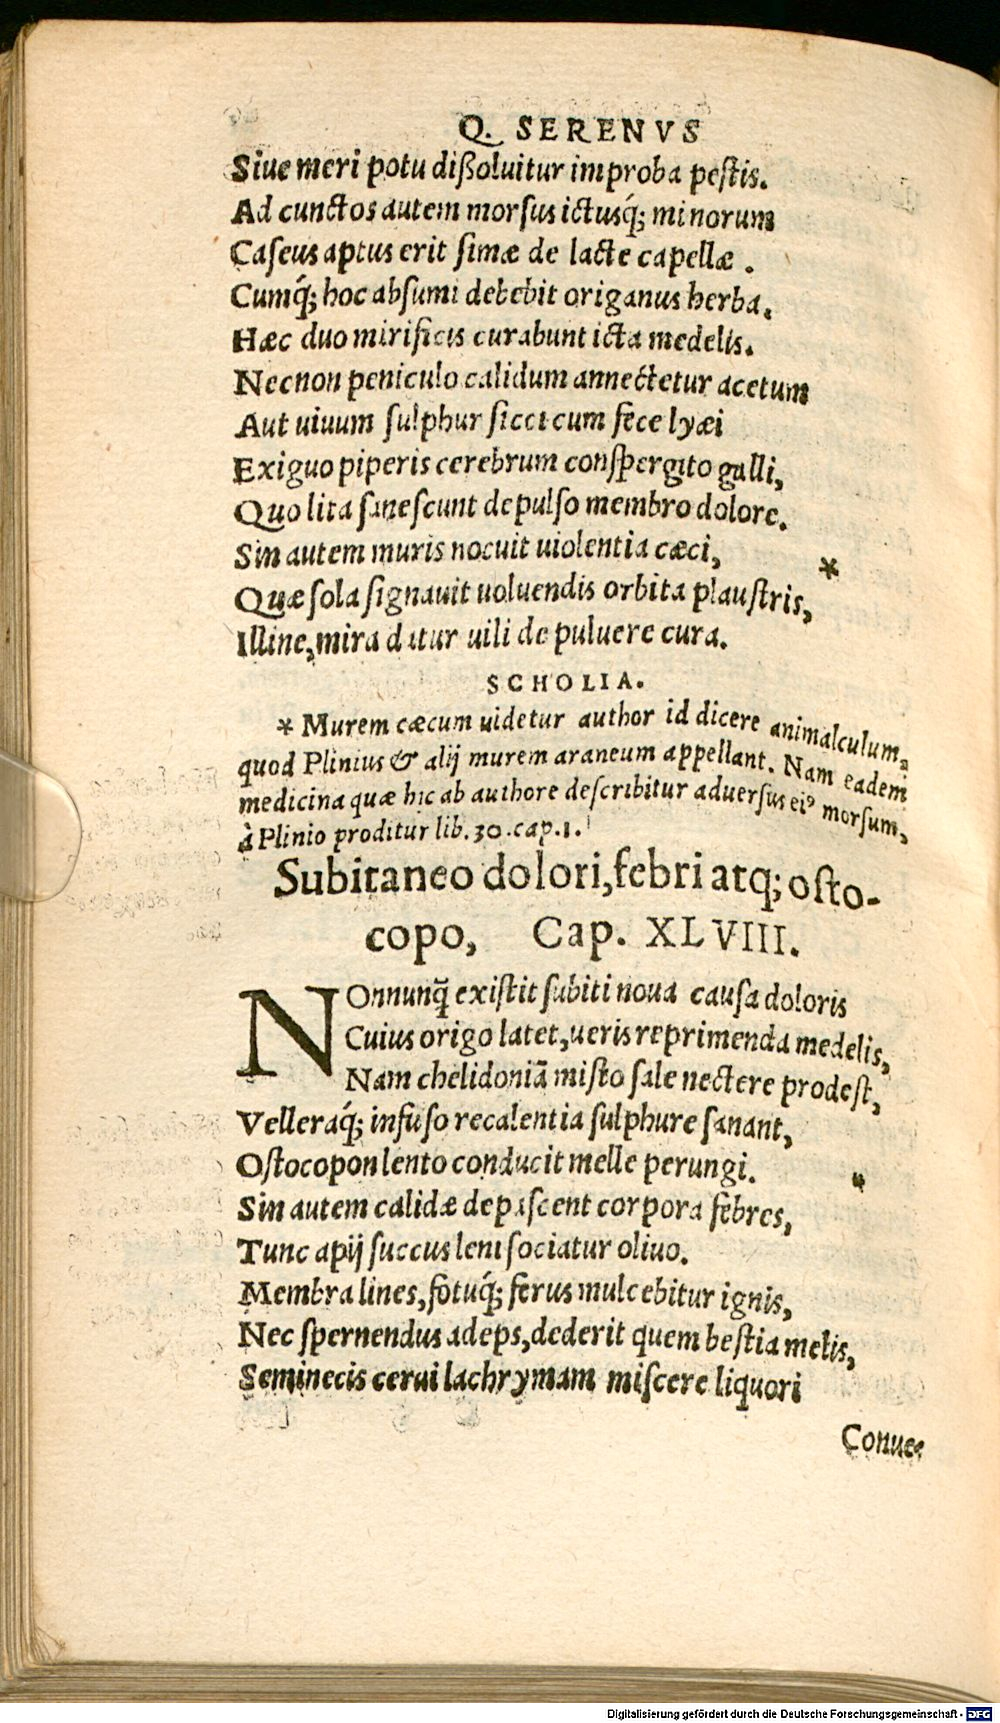 Q. SERENVS
Siue meri potu dißoluitur improba pestis.
Ad cunctos autem morsus ictusq́; minorum
Caseus aptus erit simæ de lacte capellæ .
Cumq́; hoc absumi debebit origanus herba,
Hæc duo mirificis curabunt icta medelis.
Necnon peniculo calidum annectetur acetum
Aut uiuum sulphur sicci cum fece lyæi
Exiguo piperis cerebrum conspergito galli,
Quo lita sanescunt depulso membro dolore.
Sin autem muris nocuit uiolentia cæci,
*
Quæ sola signauit uoluendis orbita plaustris,
Illine, mira datur uili de puluere cura.
SCHOLIA.
* Murem cæcum uidetur author id dicere animalculum,
quod Plinius & alij murem araneum appellant. Nam eadem
medicina quæ hic ab authore describitur aduersus eiꝰ morsum,
à Plinio proditur lib. 30. cap. 1.
Subitaneo dolori, febri atq; osto-
copo, Cap. XLVIII.
NOnnunq̃ existit subiti noua causa doloris
Cuius origo latet, ueris reprimenda medelis,
Nam chelidoniã misto sale nectere prodest,
Velleraq́; infuso recalentia sulphure sanant,
Ostocopon lento conducit melle perungi.
Sin autem calidæ depascent corpora febres,
Tunc apij succus leni sociatur oliuo.
Membra lines, fotuq́; ferus mulcebitur ignis,
Nec spernendus adeps, dederit quem bestia melis,
Seminecis cerui lachrymam miscere liquori
Conue-
Digitalisierung gefördert durch die Deutsche Forschungsgemeinschaft - DFG